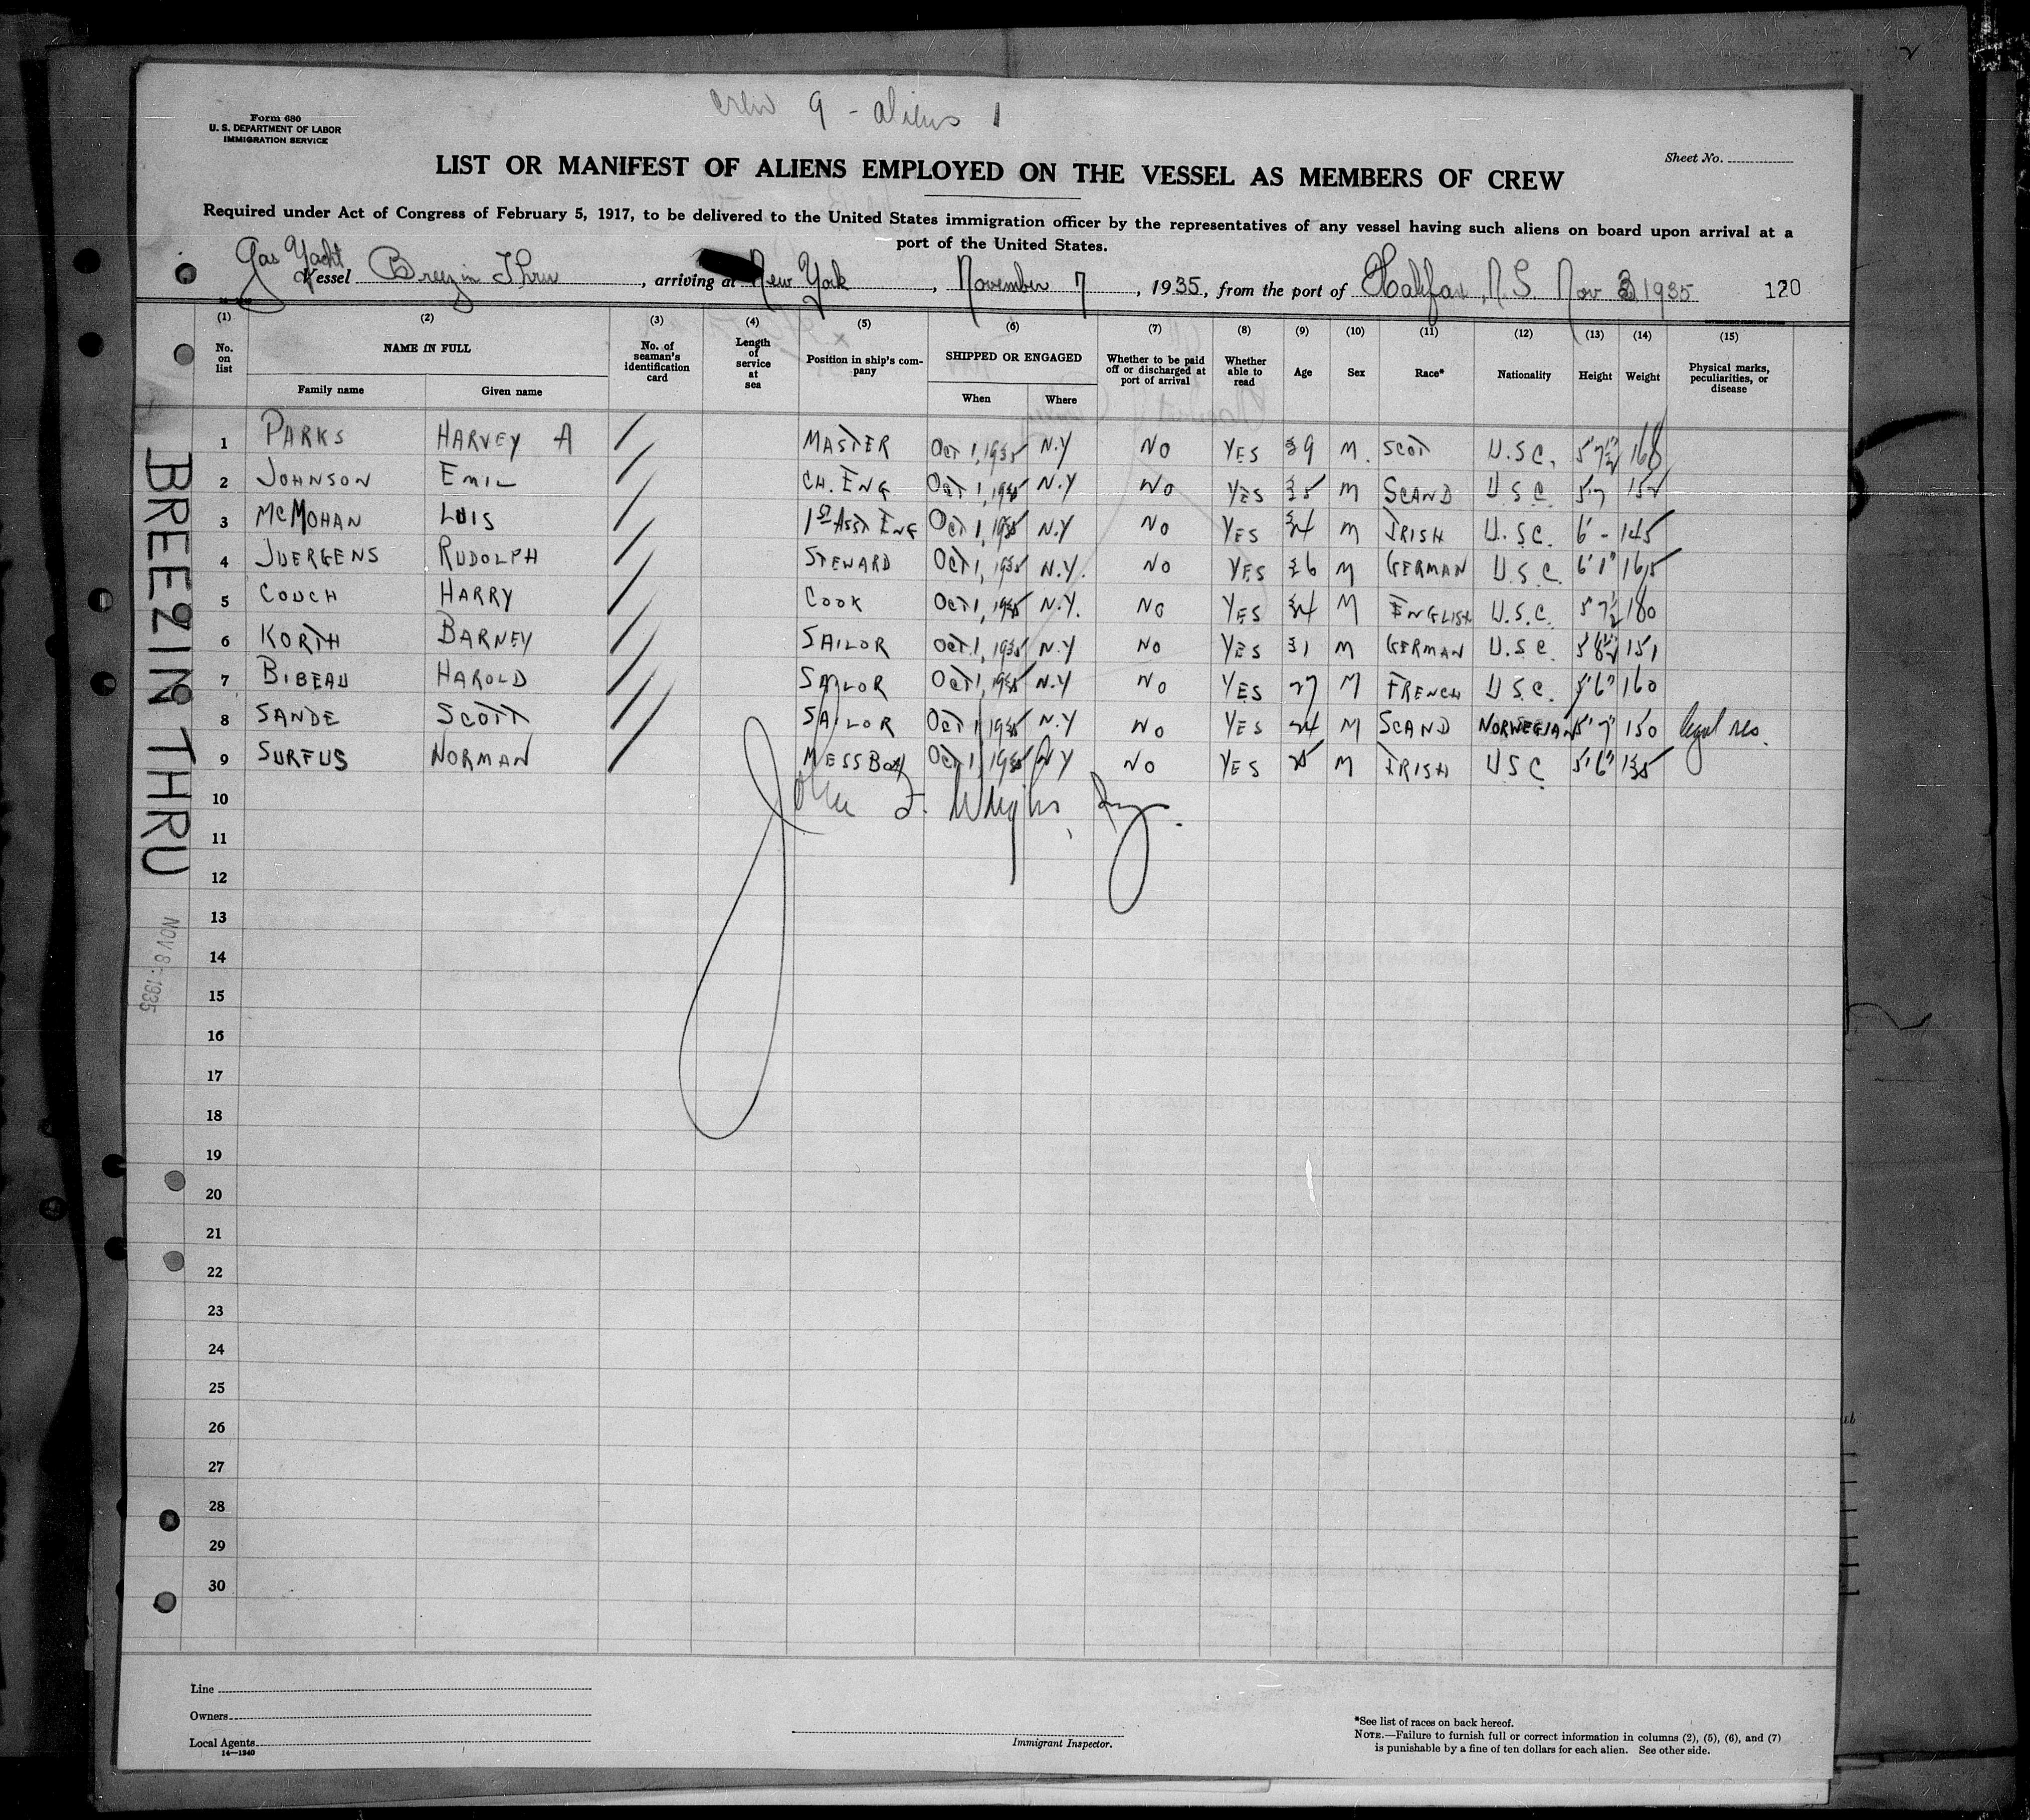 crew 9 - aliens 1
Form 680
U. S. DEPARTMENT OF LABOR
IMMIGRATION SERVICE
Sheet No.
LIST OR MANIFEST OF ALIENS EMPLOYED ON THE VESSEL AS MEMBERS OF CREW
Required under Act of Congress of February 5, 1917, to be delivered to the United States immigration officer by the representatives of any vessel having such aliens on board upon arrival at a
port of the United States.
Gas Yacht
Vessel Breezin Thru, arriving at New York, November 7, 1935, from the port of Halifax, N.S. Nov 1935 120
(1) (2) (3) (4) (5) (6) (7) (8) (9) (10) (11) (12) (13) (14) (15)
No. on list NAME IN FULL Family name Given name No. of seaman's identification card Length of service at sea Position in ship's company SHIPPED OR ENGAGED When Where Whether to be paid off or discharged at port of arrival Whether able to read Age Sex Race* Nationality Height Weight Physical marks, peculiarities, or disease
1 PARKS HARVEY A MASTER OCT 1, 1935 N.Y NO YES 39 M. SCOT U.S.C. 5'7½" 168
2 JOHNSON EMIL CH. ENG OCT 1, 1935 N.Y NO YES 35 M SCAND U S C 5'7 152
3 McMOHAN LUIS 1ST ASST ENG OCT 1, 1935 N.Y NO YES 34 M IRISH U.S.C. 6'- 145
4 JUERGENS RUDOLPH STEWARD OCT 1, 1935 N.Y. NO YES 36 M GERMAN U.S.C. 6'1" 165
5 COUCH HARRY COOK OCT 1, 1935 N.Y. NO YES 34 M ENGLISH U.S.C. 5'7½ 180
6 KORTH BARNEY SAILOR OCT 1, 1935 N.Y NO YES 31 M GERMAN U.S.C. 5'8½" 151
7 BIBEAU HAROLD SAILOR OCT 1, 1935 N.Y NO YES 27 M FRENCH U S C. 5'6" 160
8 SANDE SCOTT SAILOR OCT 1 1935 N.Y NO YES 24 M SCAND NORWEGIAN 5'7" 150 legal res.
9 SURFUS NORMAN MESS BOY OCT 1, 1935 N.Y NO YES 25 M IRISH USC 5'6" 135
10
John F. Wright, Insp.
11
12
13
14
15
16
17
18
19
20
21
22
23
24
25
26
27
28
29
30
BREEZIN THRU
NOV 8 - 1935
Line
Owners
Local Agents
14—1240
Immigrant Inspector.
*See list of races on back hereof.
NOTE.—Failure to furnish full or correct information in columns (2), (5), (6), and (7)
is punishable by a fine of ten dollars for each alien. See other side.